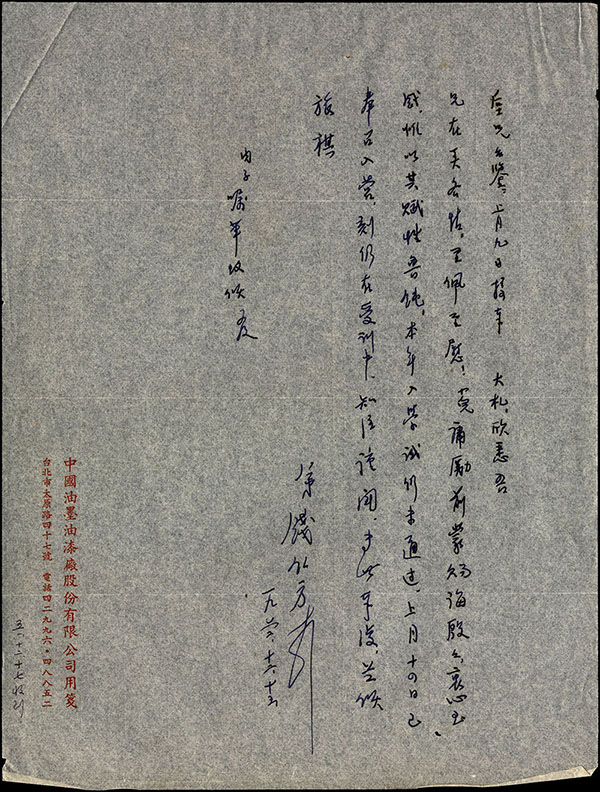 兄台鑒：上月九日接奉 大札，欣悉吾
兄在美各情，至佩至慰！勵前蒙賜誨殷殷，衷心至
感，惟以其賦性魯鈍，本年入學試仍未通過，上月十四日已
奉召入營，刻仍在受訓中，知注謹聞，專此奉復，並候
旅祺
弟 錢公方
一九六六、十二、十三
內子囑筆致候
中國油墨油漆廠股份有限公司用箋
台北市太原路四十七號 電話四二九九六・四八八五二
五、十二、十七收到